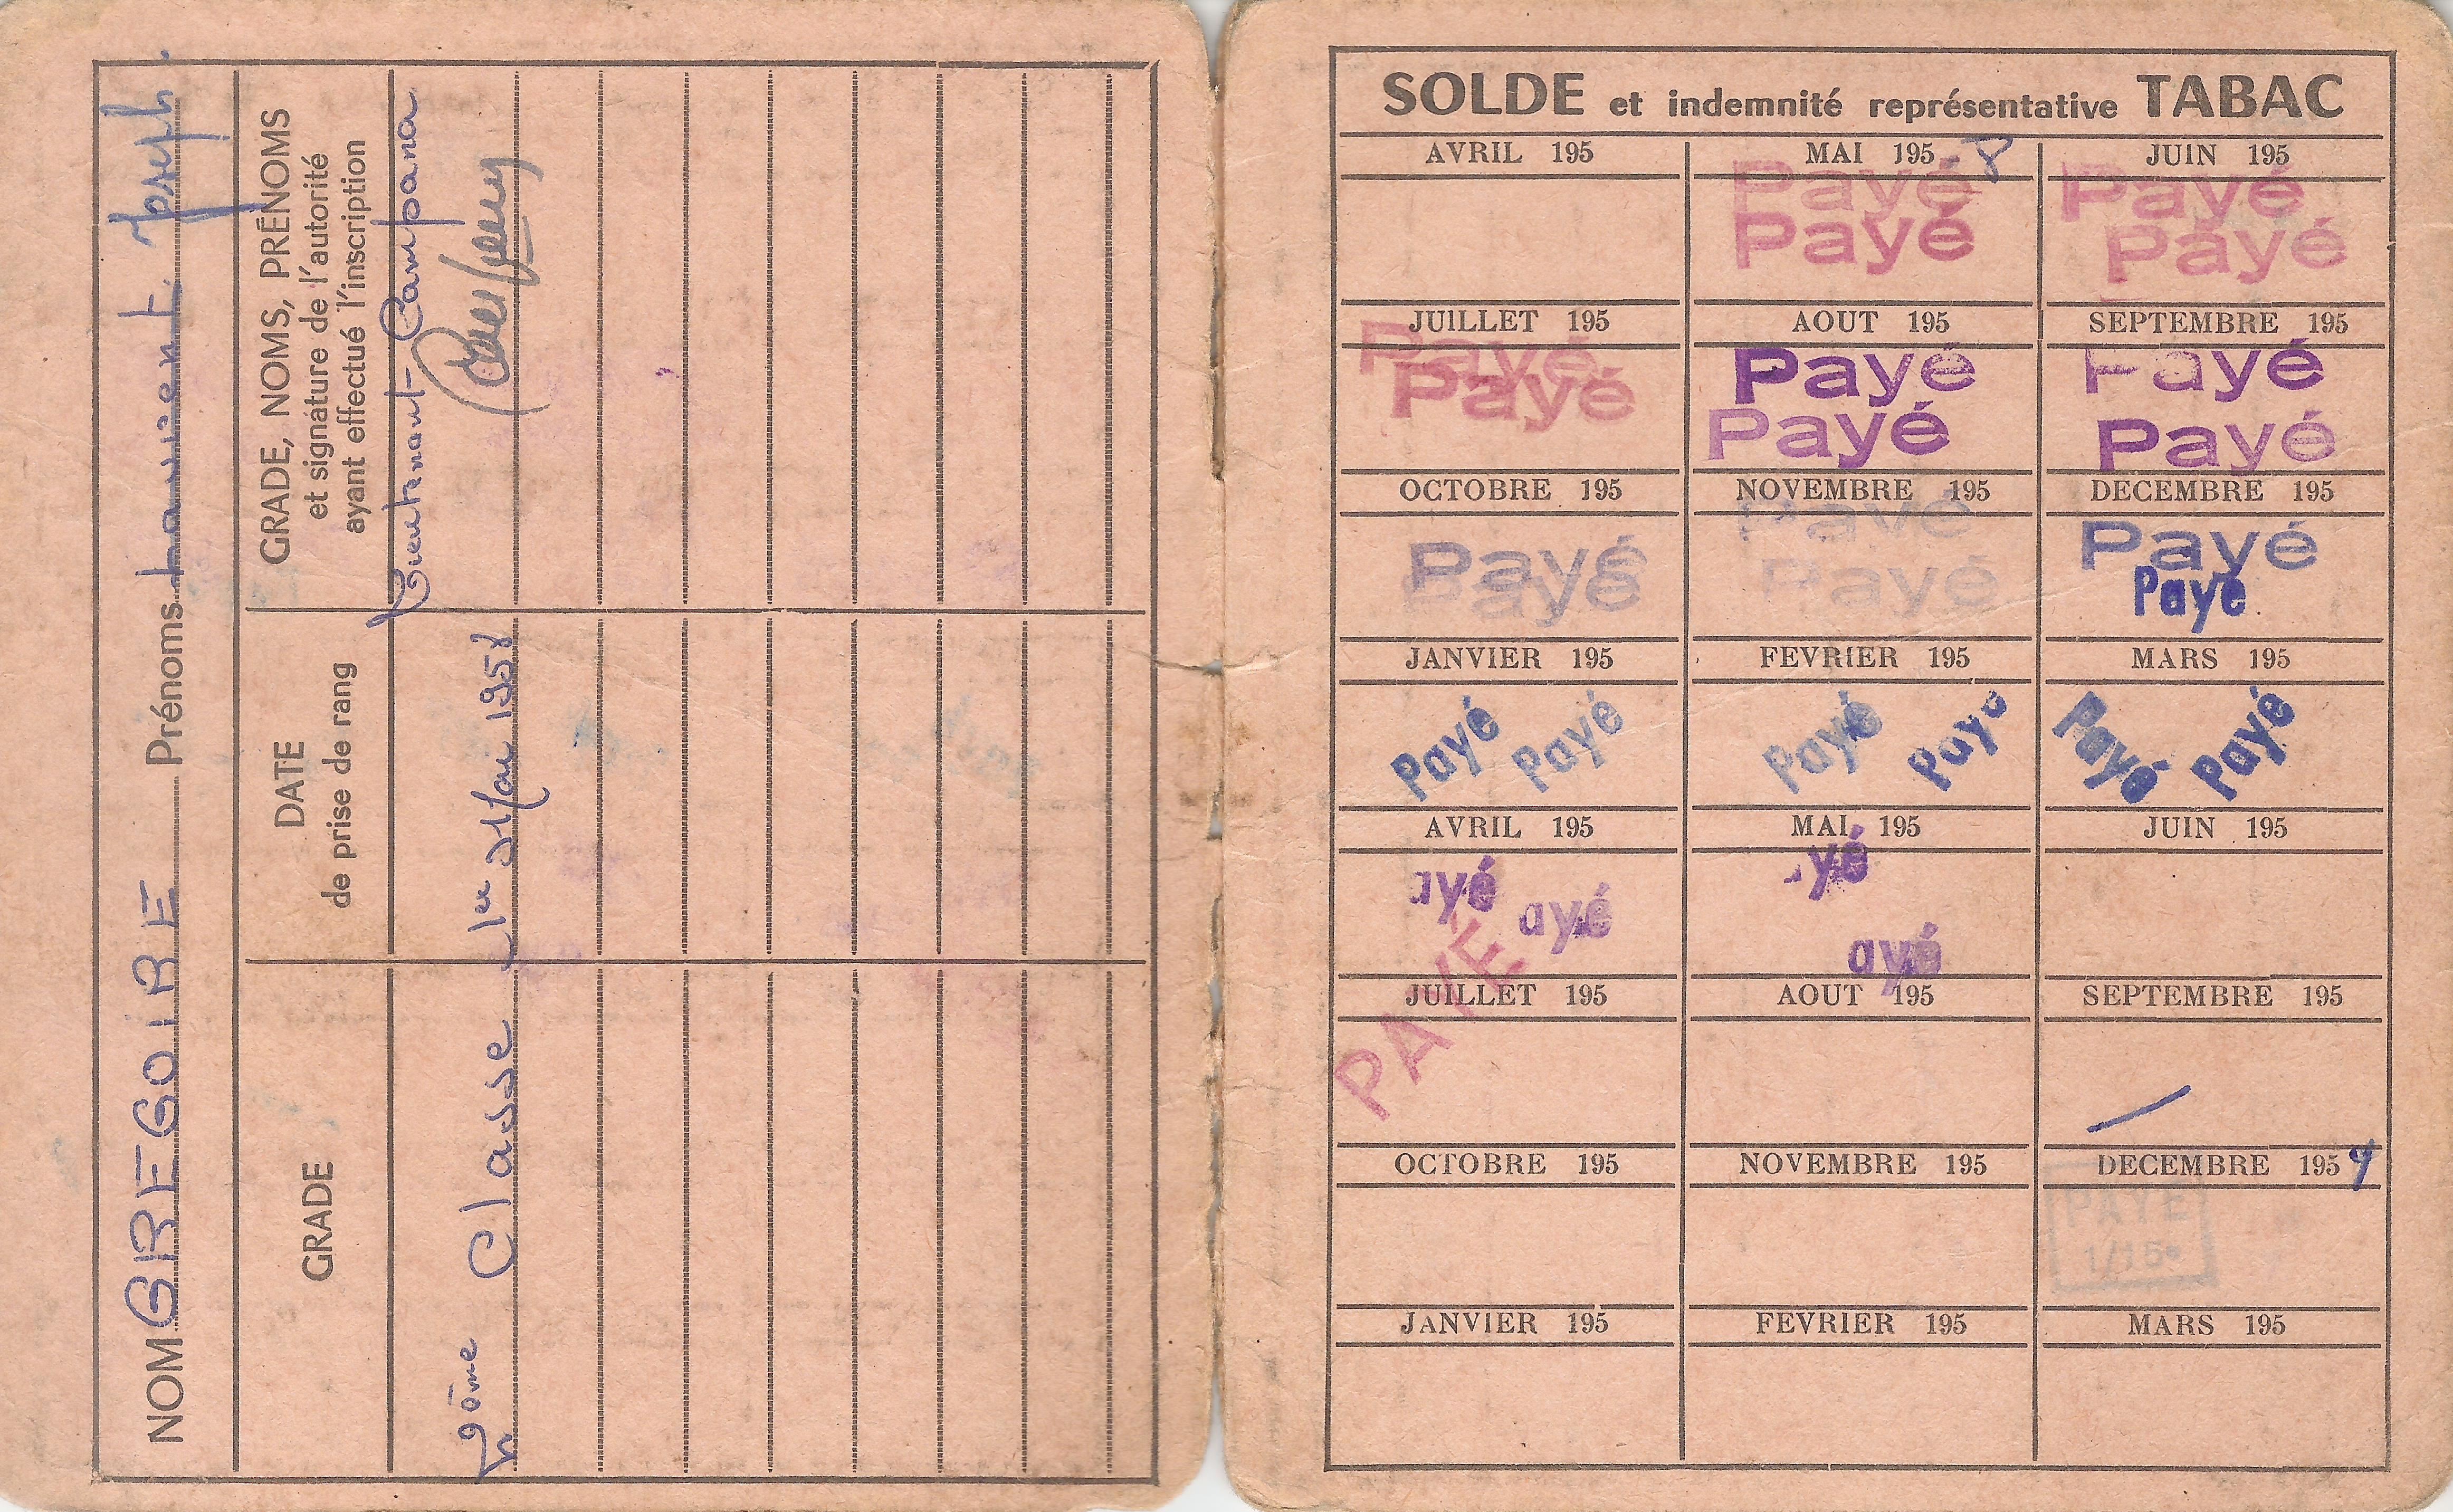 NOM GREGOIRE Prénoms Laurent Joseph.
GRADE
DATE
de prise de rang
GRADE, NOMS, PRÉNOMS
et signature de l'autorité
ayant effectué l'inscription
2ème Classe
1er Mai 1958
Lieutenant Campana
SOLDE et indemnité représentative TABAC
AVRIL 195 MAI 195 JUIN 195
Payé Payé
Payé Payé
JUILLET 195 AOUT 195 SEPTEMBRE 195
Payé Payé Payé
Payé Payé Payé
OCTOBRE 195 NOVEMBRE 195 DECEMBRE 195
Payé Payé Payé
Payé Payé Payé
JANVIER 195 FEVRIER 195 MARS 195
Payé Payé Payé Payé Payé Payé
AVRIL 195 MAI 195 JUIN 195
ayé ayé yé
ayé
PAYÉ
JUILLET 195 AOUT 195 SEPTEMBRE 195
OCTOBRE 195 NOVEMBRE 195 DECEMBRE 1959
PAYÉ
1/15
JANVIER 195 FEVRIER 195 MARS 195